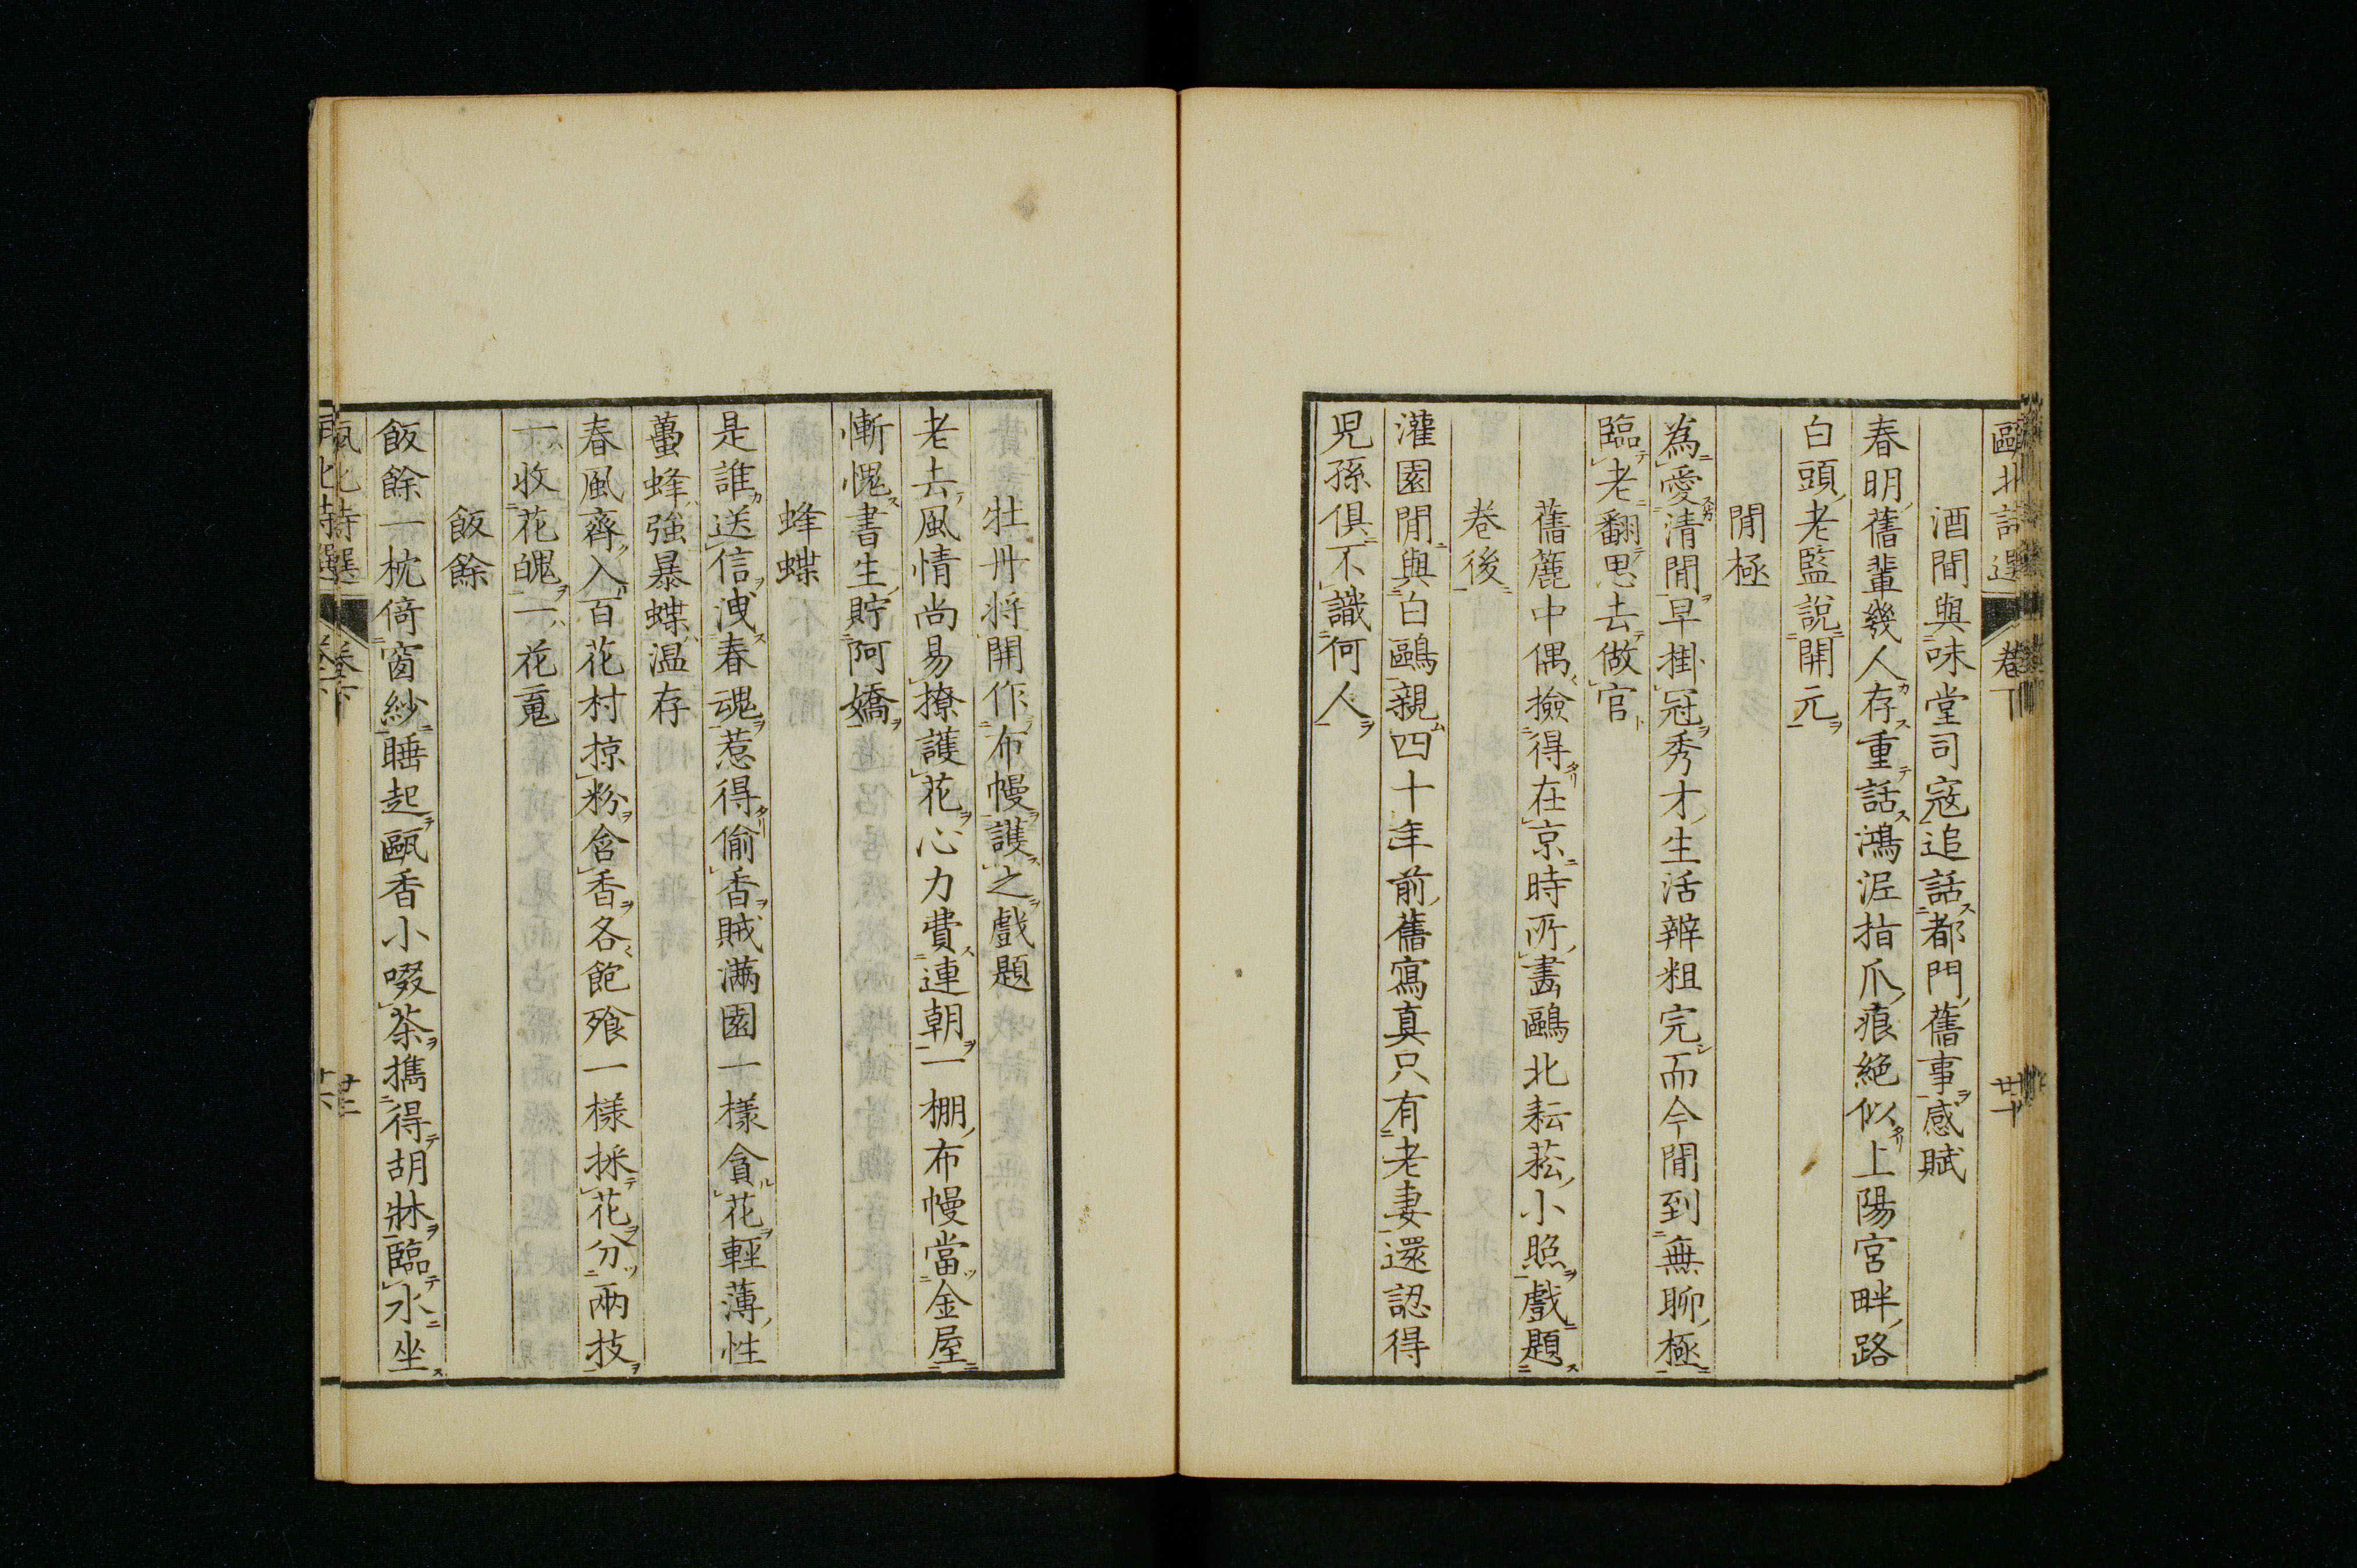 甌北詩選 卷下
酒間與味堂司寇追話都門舊事感賦
春明舊輩幾人存重話鴻泥指爪痕絶似上陽宮畔路
白頭老監說開元
閒極
為愛清閒早掛冠秀才生活辨粗完而今閒到無聊極
臨老翻思去做官
舊簏中偶撿得在京時所畫鷗北耘菘小照戲題
卷後
灌園閒與白鷗親四十年前舊寫真只有老妻還認得
兒孫俱不識何人
牡丹將開作布幔護之戲題
老去風情尚易撩護花心力費連朝一棚布幔當金屋
慚愧書生貯阿嬌
蜂蝶
是誰送信洩春魂惹得偷香賊滿園一樣貪花輕薄性
蠆蜂強暴蝶温存
春風齊入百花村掠粉含香各飽飱一樣採花分兩技
一收花魄一花䰟
飯餘
飯餘一枕倚窗紗睡起甌香小啜茶攜得胡牀臨水坐